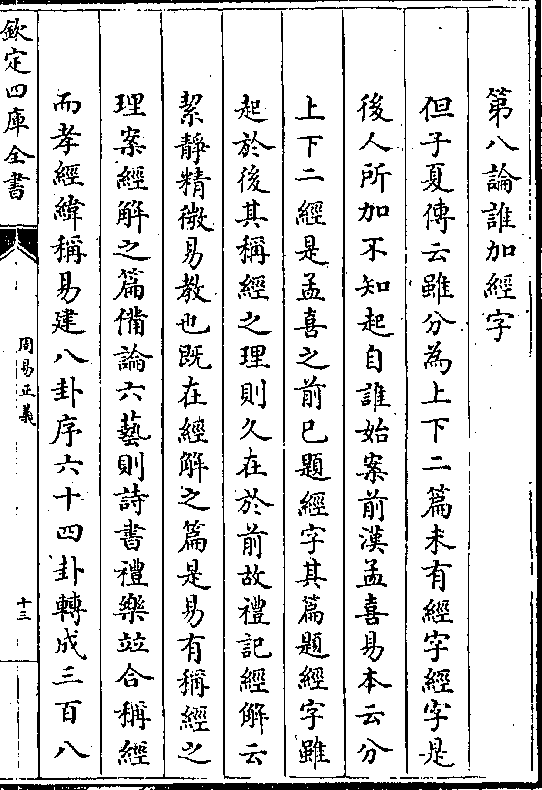 第八論誰加經字
但子夏傳云雖分為上下二篇未有經字經字是
後人所加不知起自誰始案前漢孟喜易本云分
上下二經是孟喜之前已題經字其篇題經字雖
起於後其稱經之理則久在於前故禮記經解云
絜靜精微易教也既在經解之篇是易有稱經之
理案經解之篇備論六藝則詩書禮樂竝合稱經
而孝經緯稱易建八卦序六十四卦轉成三百八
欽定四庫全書
周易正義
十三